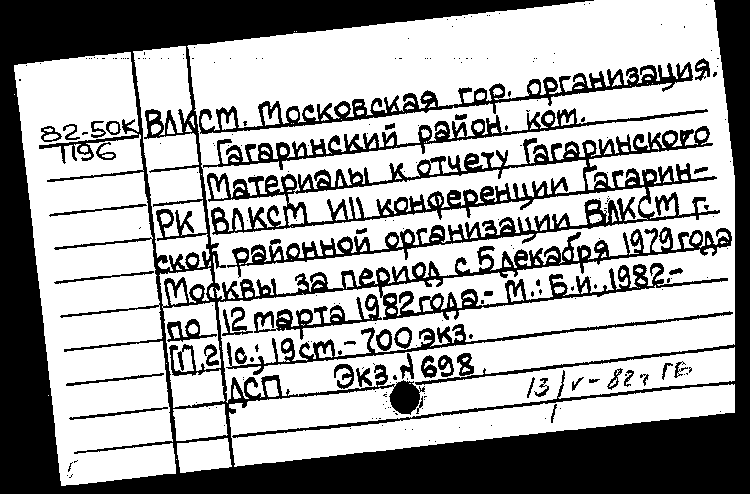 82-50К ВЛКСМ. Московская гор. организация.
1196 Гагаринский район. ком.
Материалы к отчету Гагаринского
РК ВЛКСМ VIII конференции Гагарин-
ской районной организации ВЛКСМ г.
Москвы за период с 5 декабря 1979 года
по 12 марта 1982 года.- М.: Б.и., 1982.-
[1], 21с.; 19см.- 700 экз.
ДСП. Экз. № 698.
13/V-82г